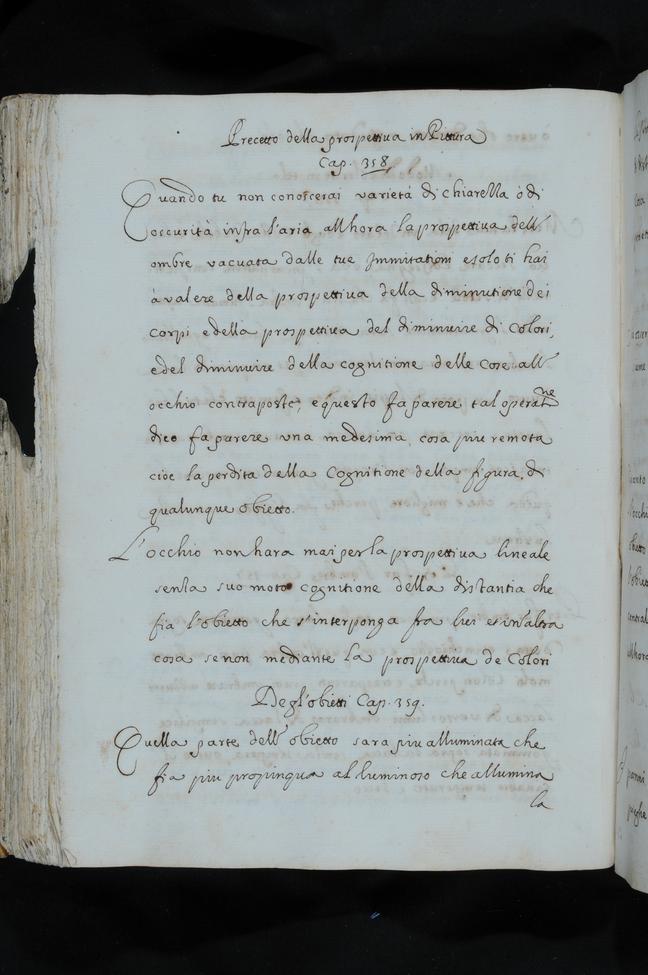 Precetto della prospettiua in Pittura
Cap. 358.
Quando tu non conoscerai varietá di chiarezza ò di
oscurità infra l'aria allhora la prospettiua dell'
ombre vacuata dalle tue Immitationi e solo ti hai
à valere della prospettiua della diminutione dei
corpi e della prospettiua del diminuire di Colori,
e del diminuire della cognitione delle Cose all'
occhio contraposte, e questo fa parere tal operat.ne
dico fa parere vna medesima cosa piu remota
cioe la perdita della Cognitione della figura di
qualunque obietto.
L'occhio non hara mai per la prospettiua lineale
senza suo moto cognitione della distantia che
fia l'obietto che s'interponga fra lui e un'altra
cosa se non mediante la prospettiua de Colori
Degl'obietti Cap. 359.
Quella parte dell' obietto sara piu alluminata che
fia piu propinqua al luminoso che allumina
la